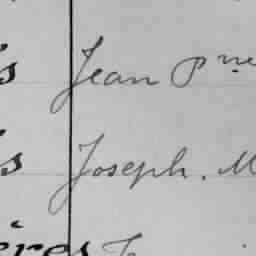 s Jean Pne
s Joseph. M
ères